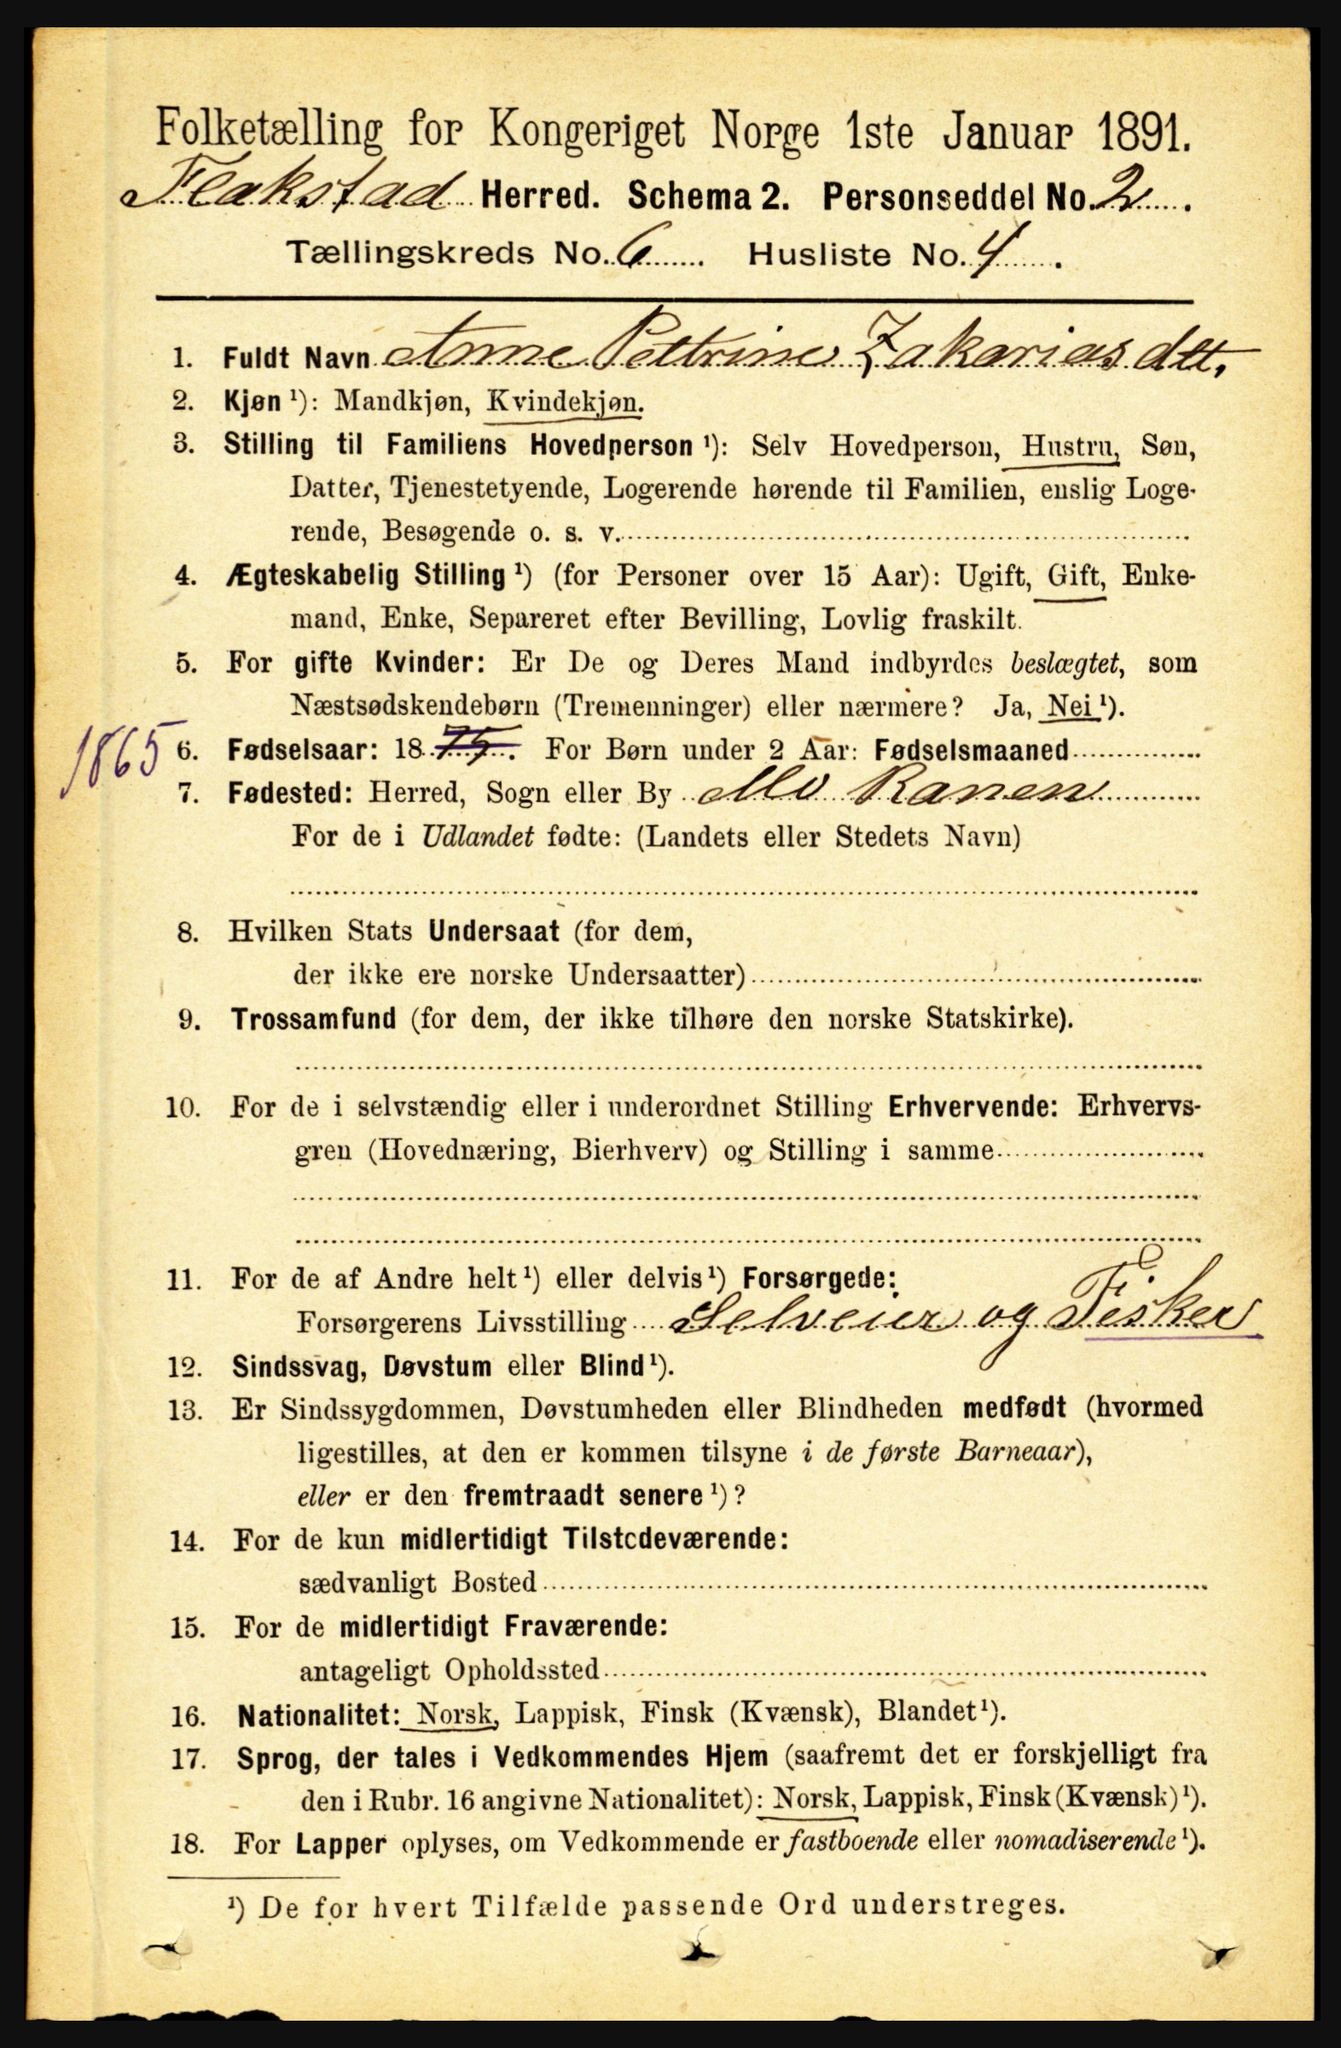 Folketælling for Kongeriget Norge 1ste Januar 1891.
Flakstad Herred. Schema 2. Personseddel No. 2.
Tællingskreds No. 6. Husliste No. 4.
1. Fuldt Navn Anne Pettrine Zakariasdtt.
2. Kjøn ¹): Mandkjøn, Kvindekjøn.
3. Stilling til Familiens Hovedperson ¹): Selv Hovedperson, Hustru, Søn,
Datter, Tjenestetyende, Logerende hørende til Familien, enslig Loge-
rende, Besøgende o. s. v.
4. Ægteskabelig Stilling ¹) (for Personer over 15 Aar): Ugift, Gift, Enke-
mand, Enke, Separeret efter Bevilling, Lovlig fraskilt.
5. For gifte Kvinder: Er De og Deres Mand indbyrdes beslægtet, som
Næstsødskendebørn (Tremenninger) eller nærmere? Ja, Nei ¹).
1865 6. Fødselsaar: 18 75. For Børn under 2 Aar: Fødselsmaaned
7. Fødested: Herred, Sogn eller By Mo Ranen
For de i Udlandet fødte: (Landets eller Stedets Navn)
8. Hvilken Stats Undersaat (for dem,
der ikke ere norske Undersaatter)
9. Trossamfund (for dem, der ikke tilhøre den norske Statskirke).
10. For de i selvstændig eller i underordnet Stilling Erhvervende: Erhvervs-
gren (Hovednæring, Bierhverv) og Stilling i samme
11. For de af Andre helt ¹) eller delvis ¹) Forsørgede:
Forsørgerens Livsstilling Selveier og Fisker
12. Sindssvag, Døvstum eller Blind ¹).
13. Er Sindssygdommen, Døvstumheden eller Blindheden medfødt (hvormed
ligestilles, at den er kommen tilsyne i de første Barneaar),
eller er den fremtraadt senere ¹)?
14. For de kun midlertidigt Tilstedeværende:
sædvanligt Bosted
15. For de midlertidigt Fraværende:
antageligt Opholdssted
16. Nationalitet: Norsk, Lappisk, Finsk (Kvænsk), Blandet ¹).
17. Sprog, der tales i Vedkommendes Hjem (saafremt det er forskjelligt fra
den i Rubr. 16 angivne Nationalitet): Norsk, Lappisk, Finsk (Kvænsk) ¹).
18. For Lapper oplyses, om Vedkommende er fastboende eller nomadiserende ¹).
¹) De for hvert Tilfælde passende Ord understreges.